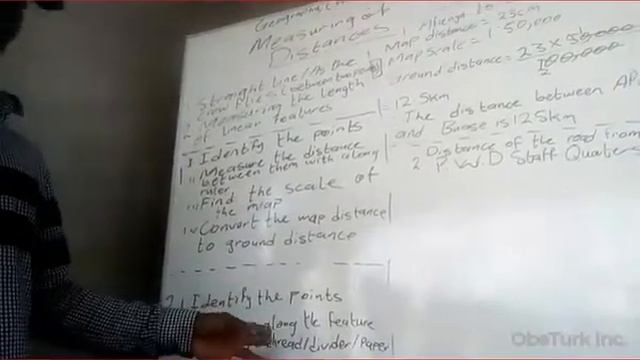 Geographic
Measuring of
Distances
1. Straight Line/As the
Crow flies (between two points)
2. Measuring the Length
of linear features
1 Identify the points
ii Measure the distance
between them with a long
ruler
iii Find the scale of
the map
iv Convert the map distance
to ground distance
2. i Identify the points
along the feature
thread/divider/paper
Map distance = 25cm
Map Scale = 1:50,000
Ground distance = 25 x 50,000
100,000
2
= 12.5km
The distance between AP
and Buose is 12.5km
2 Distance of the road from
P.W.D Staff Quaters
ObsTurk Inc.